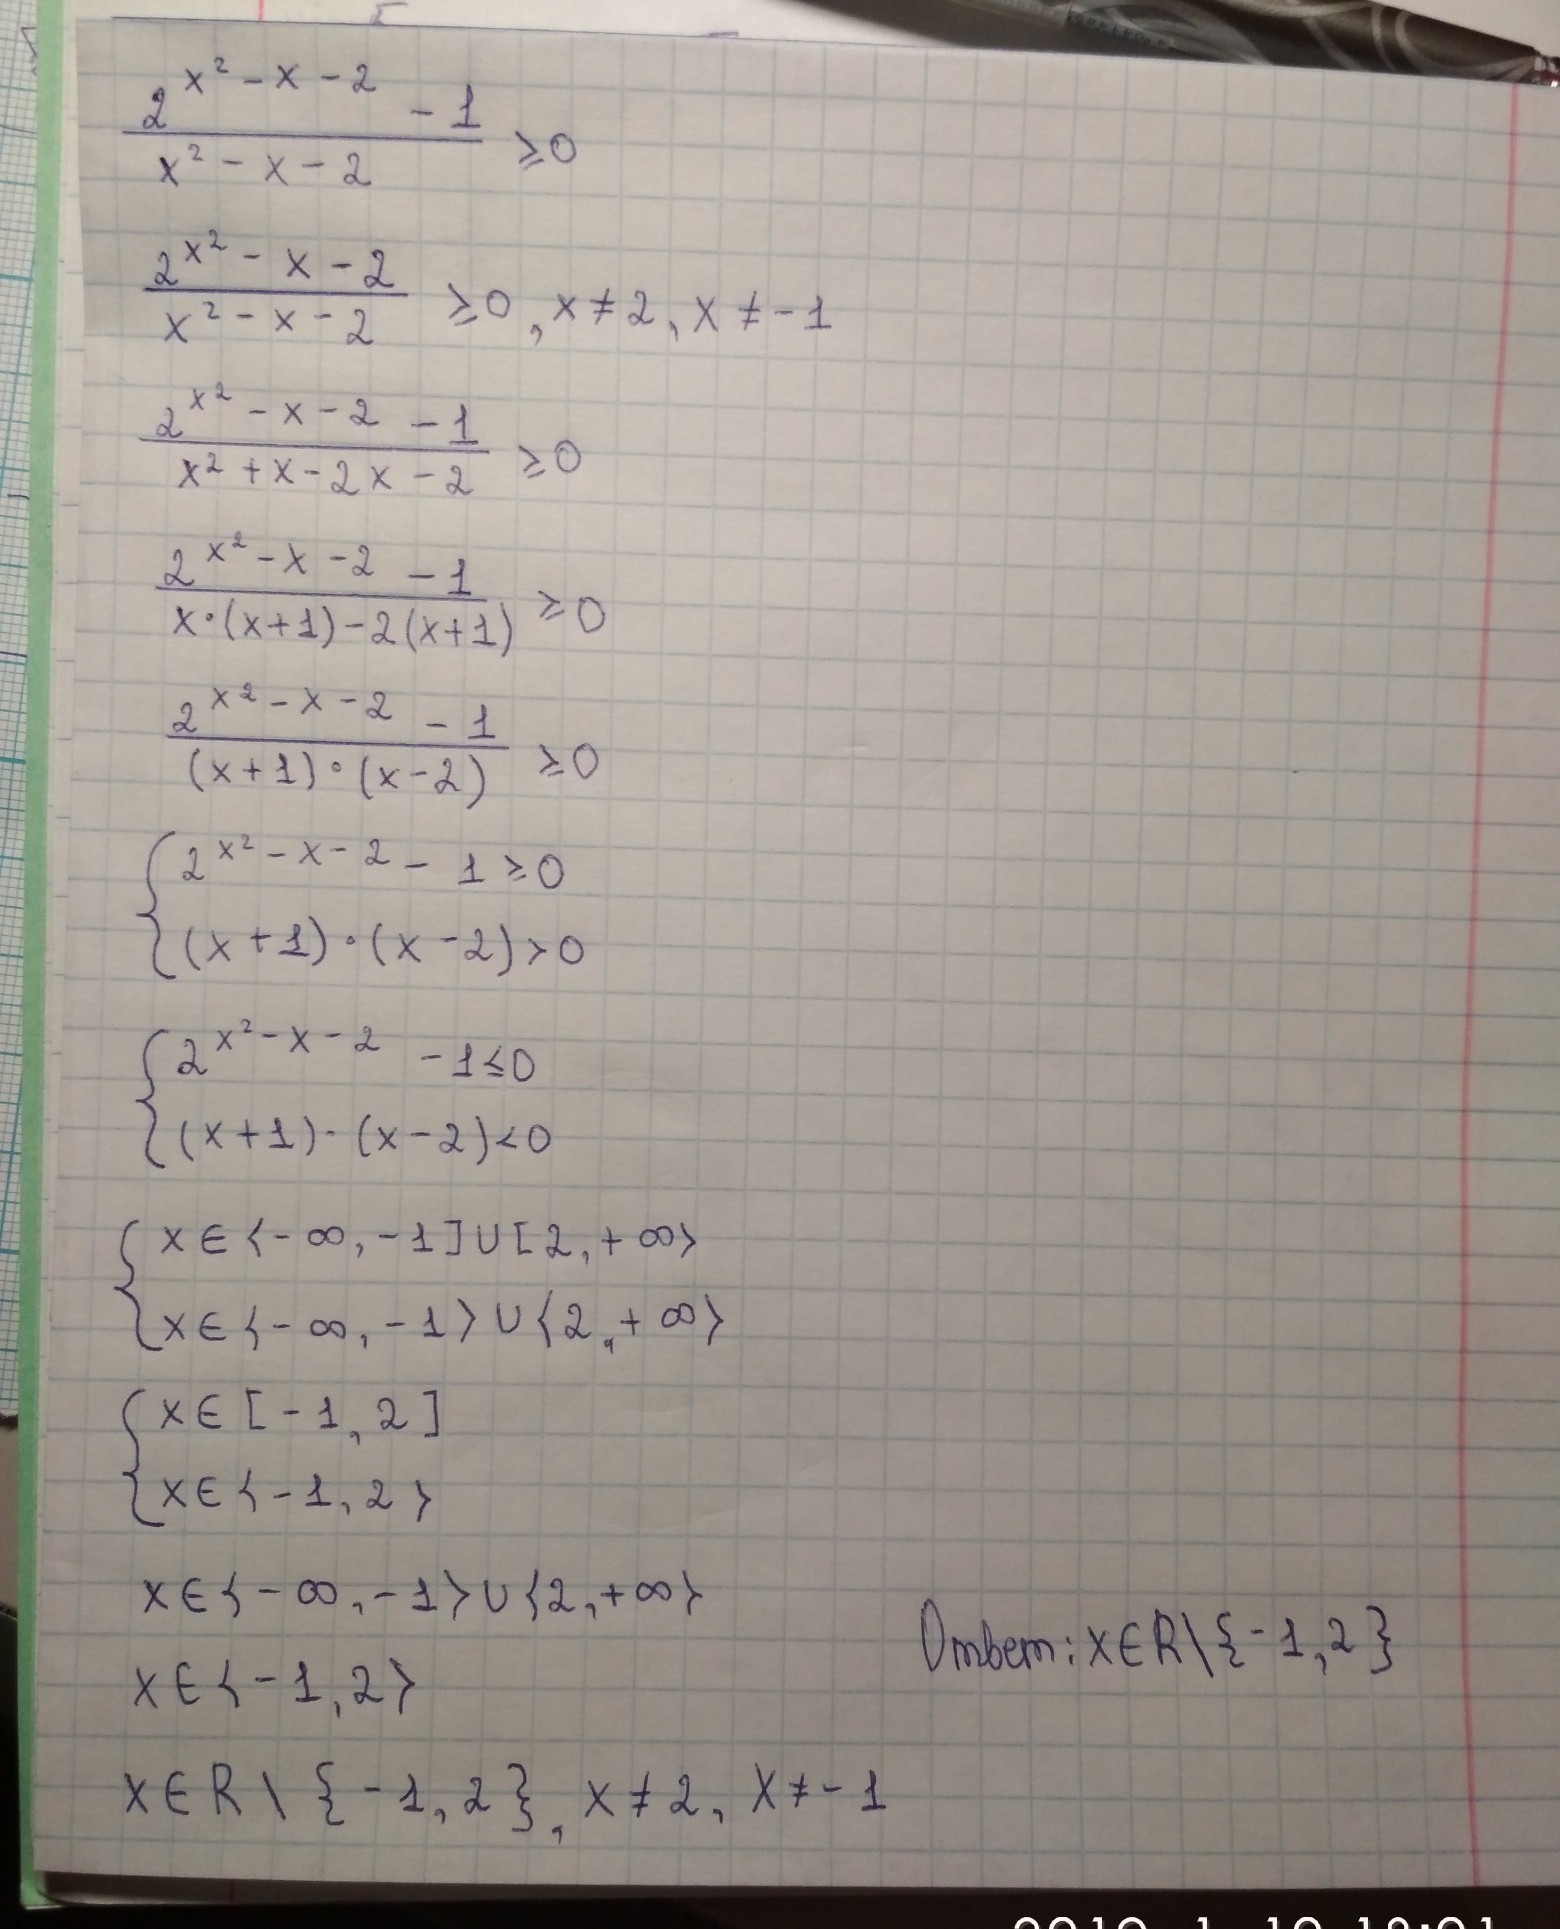 2^{x² - x - 2} - 1
x² - x - 2
≥0
2^{x²} - x - 2
x² - x - 2
≥0, x ≠ 2, x ≠ -1
2^{x² - x - 2} - 1
x² + x - 2x - 2
≥0
2^{x² - x - 2} - 1
x·(x+1) - 2(x+1)
≥0
2^{x² - x - 2} - 1
(x+1)·(x-2)
≥0
{ 2^{x² - x - 2} - 1 ≥ 0
(x+1)·(x-2) > 0
{ 2^{x² - x - 2} - 1 ≤ 0
(x+1)·(x-2) < 0
{ x ∈ ⟨-∞, -1] ∪ [2, +∞⟩
x ∈ ⟨-∞, -1⟩ ∪ ⟨2, +∞⟩
{ x ∈ [-1, 2]
x ∈ ⟨-1, 2⟩
x ∈ ⟨-∞, -1⟩ ∪ ⟨2, +∞⟩
x ∈ ⟨-1, 2⟩
x ∈ R \ {-1, 2}, x ≠ 2, x ≠ -1
Ответ: x ∈ R \ {-1, 2}